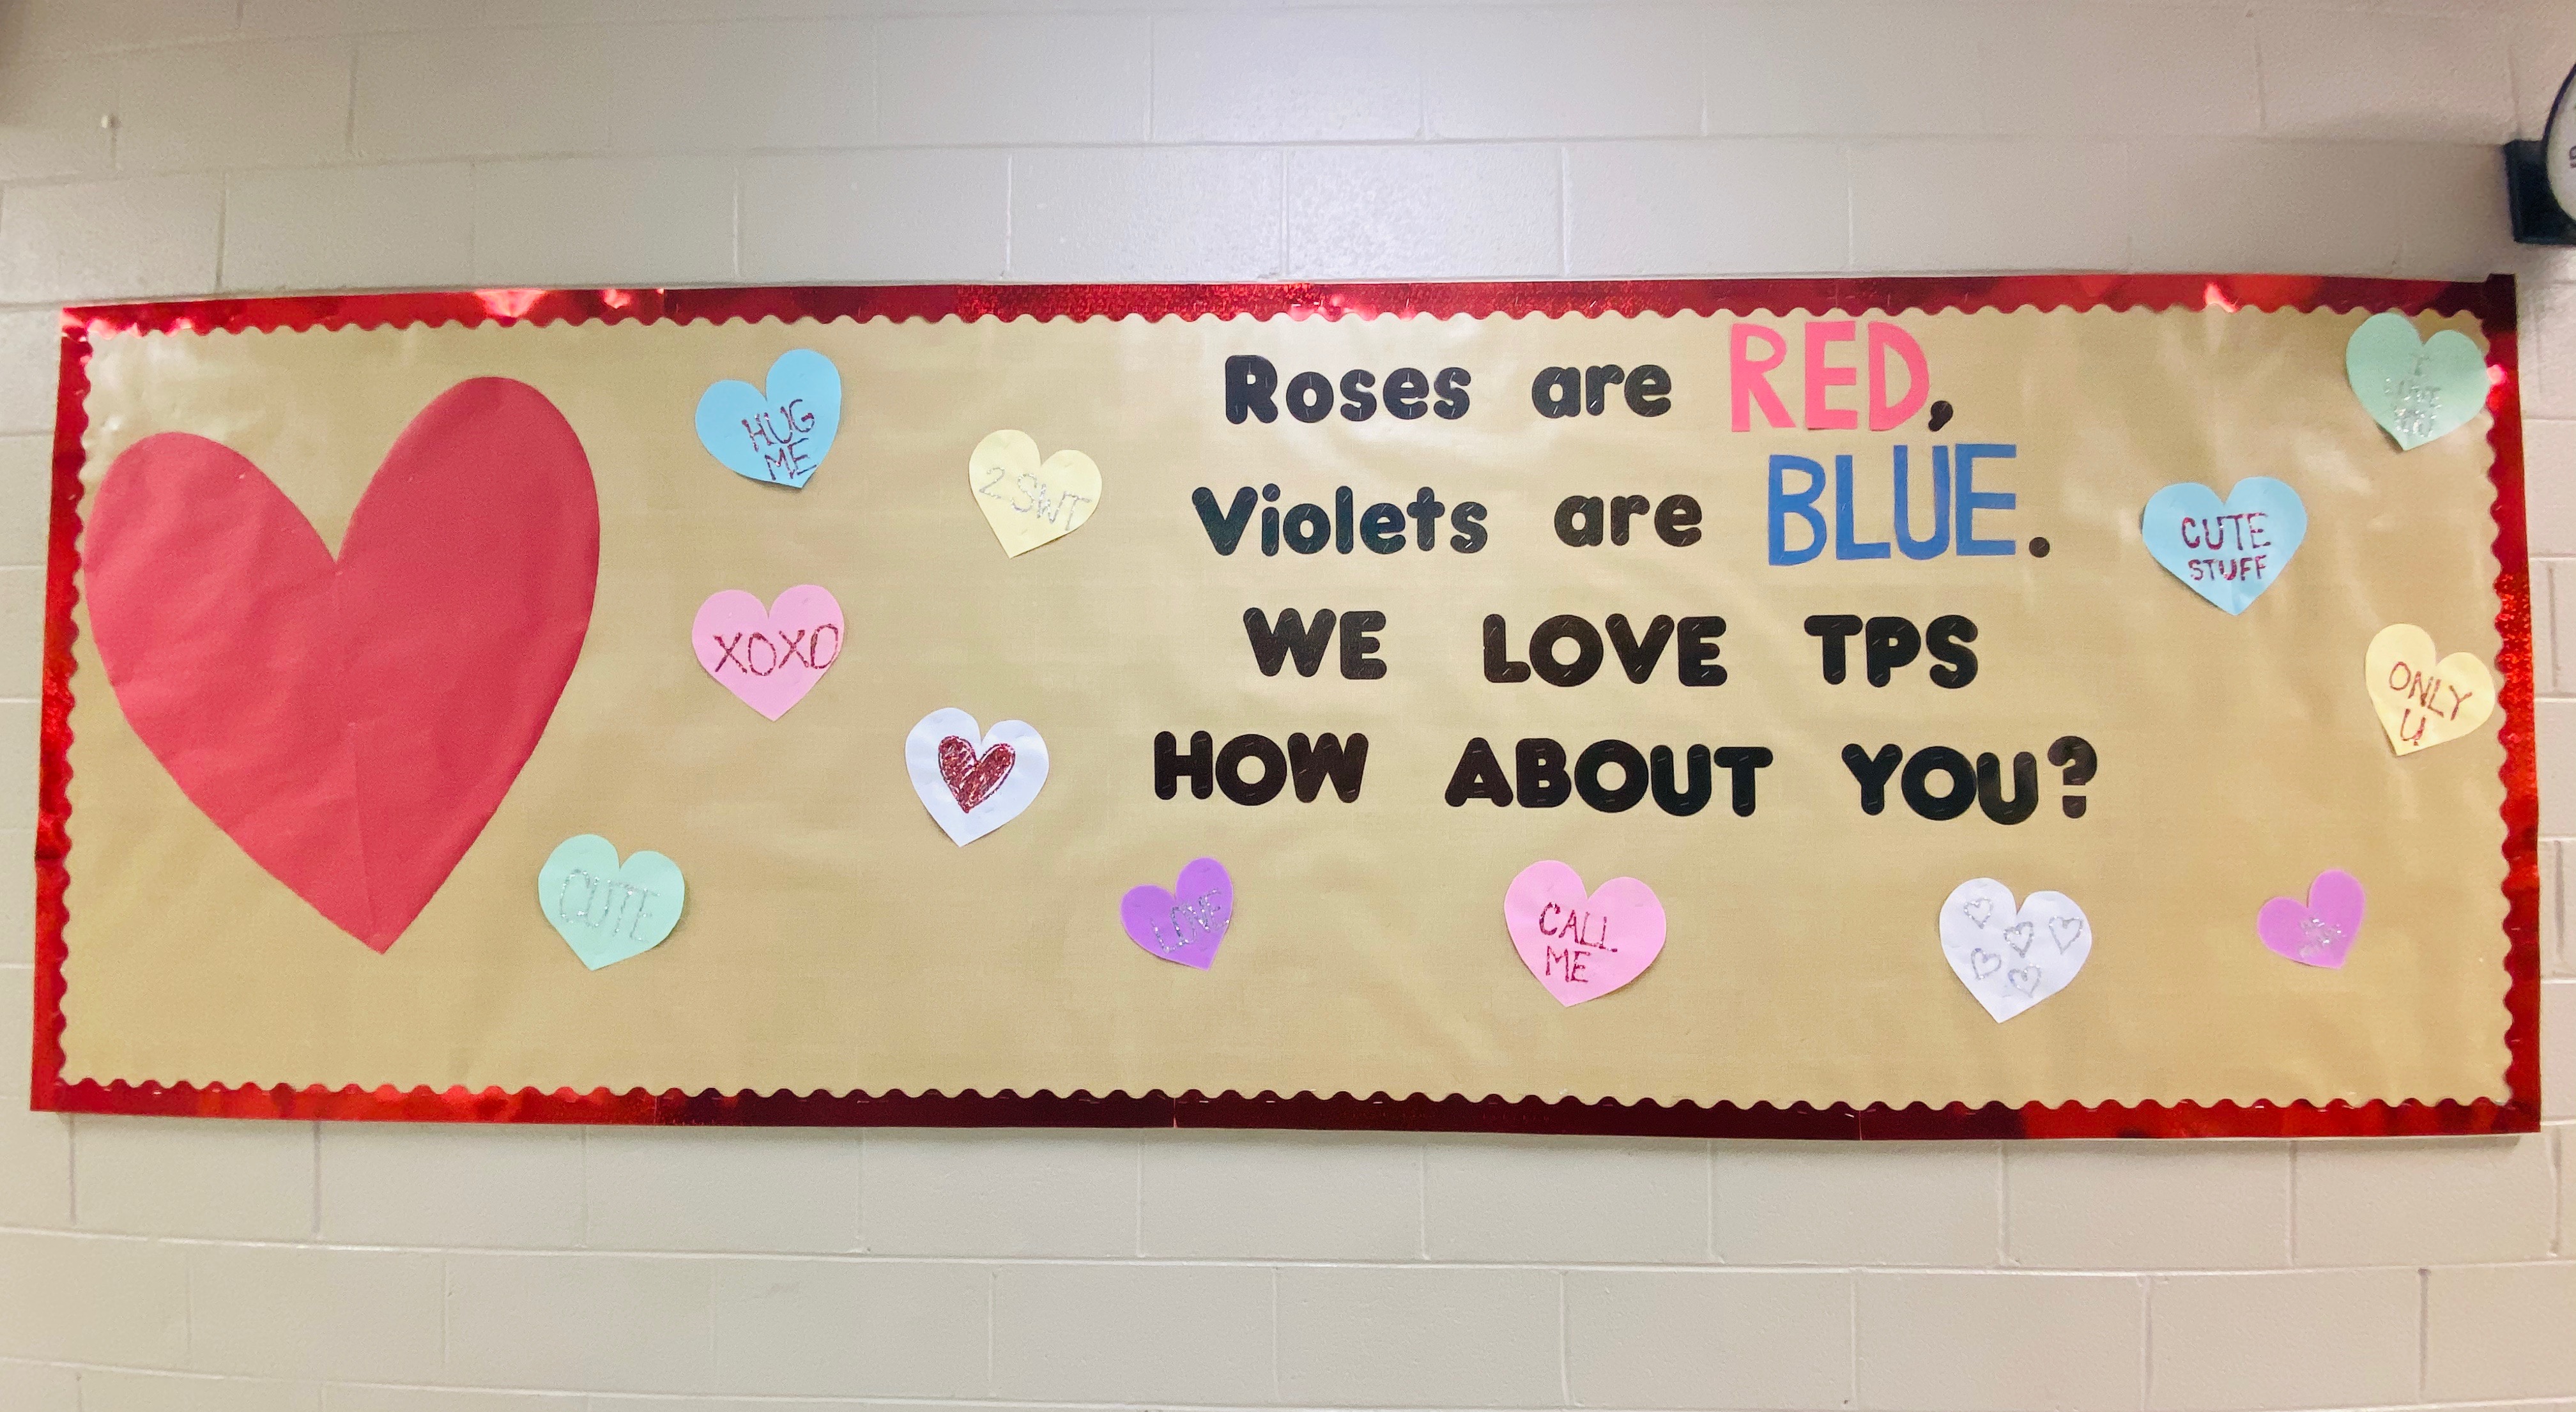 Roses are RED,
Violets are BLUE.
WE LOVE TPS
HOW ABOUT YOU?
HUG
ME
2 SWT
XOXO
CUTE
LOVE
CALL
ME
I
LOVE
YOU
CUTE
STUFF
ONLY
U